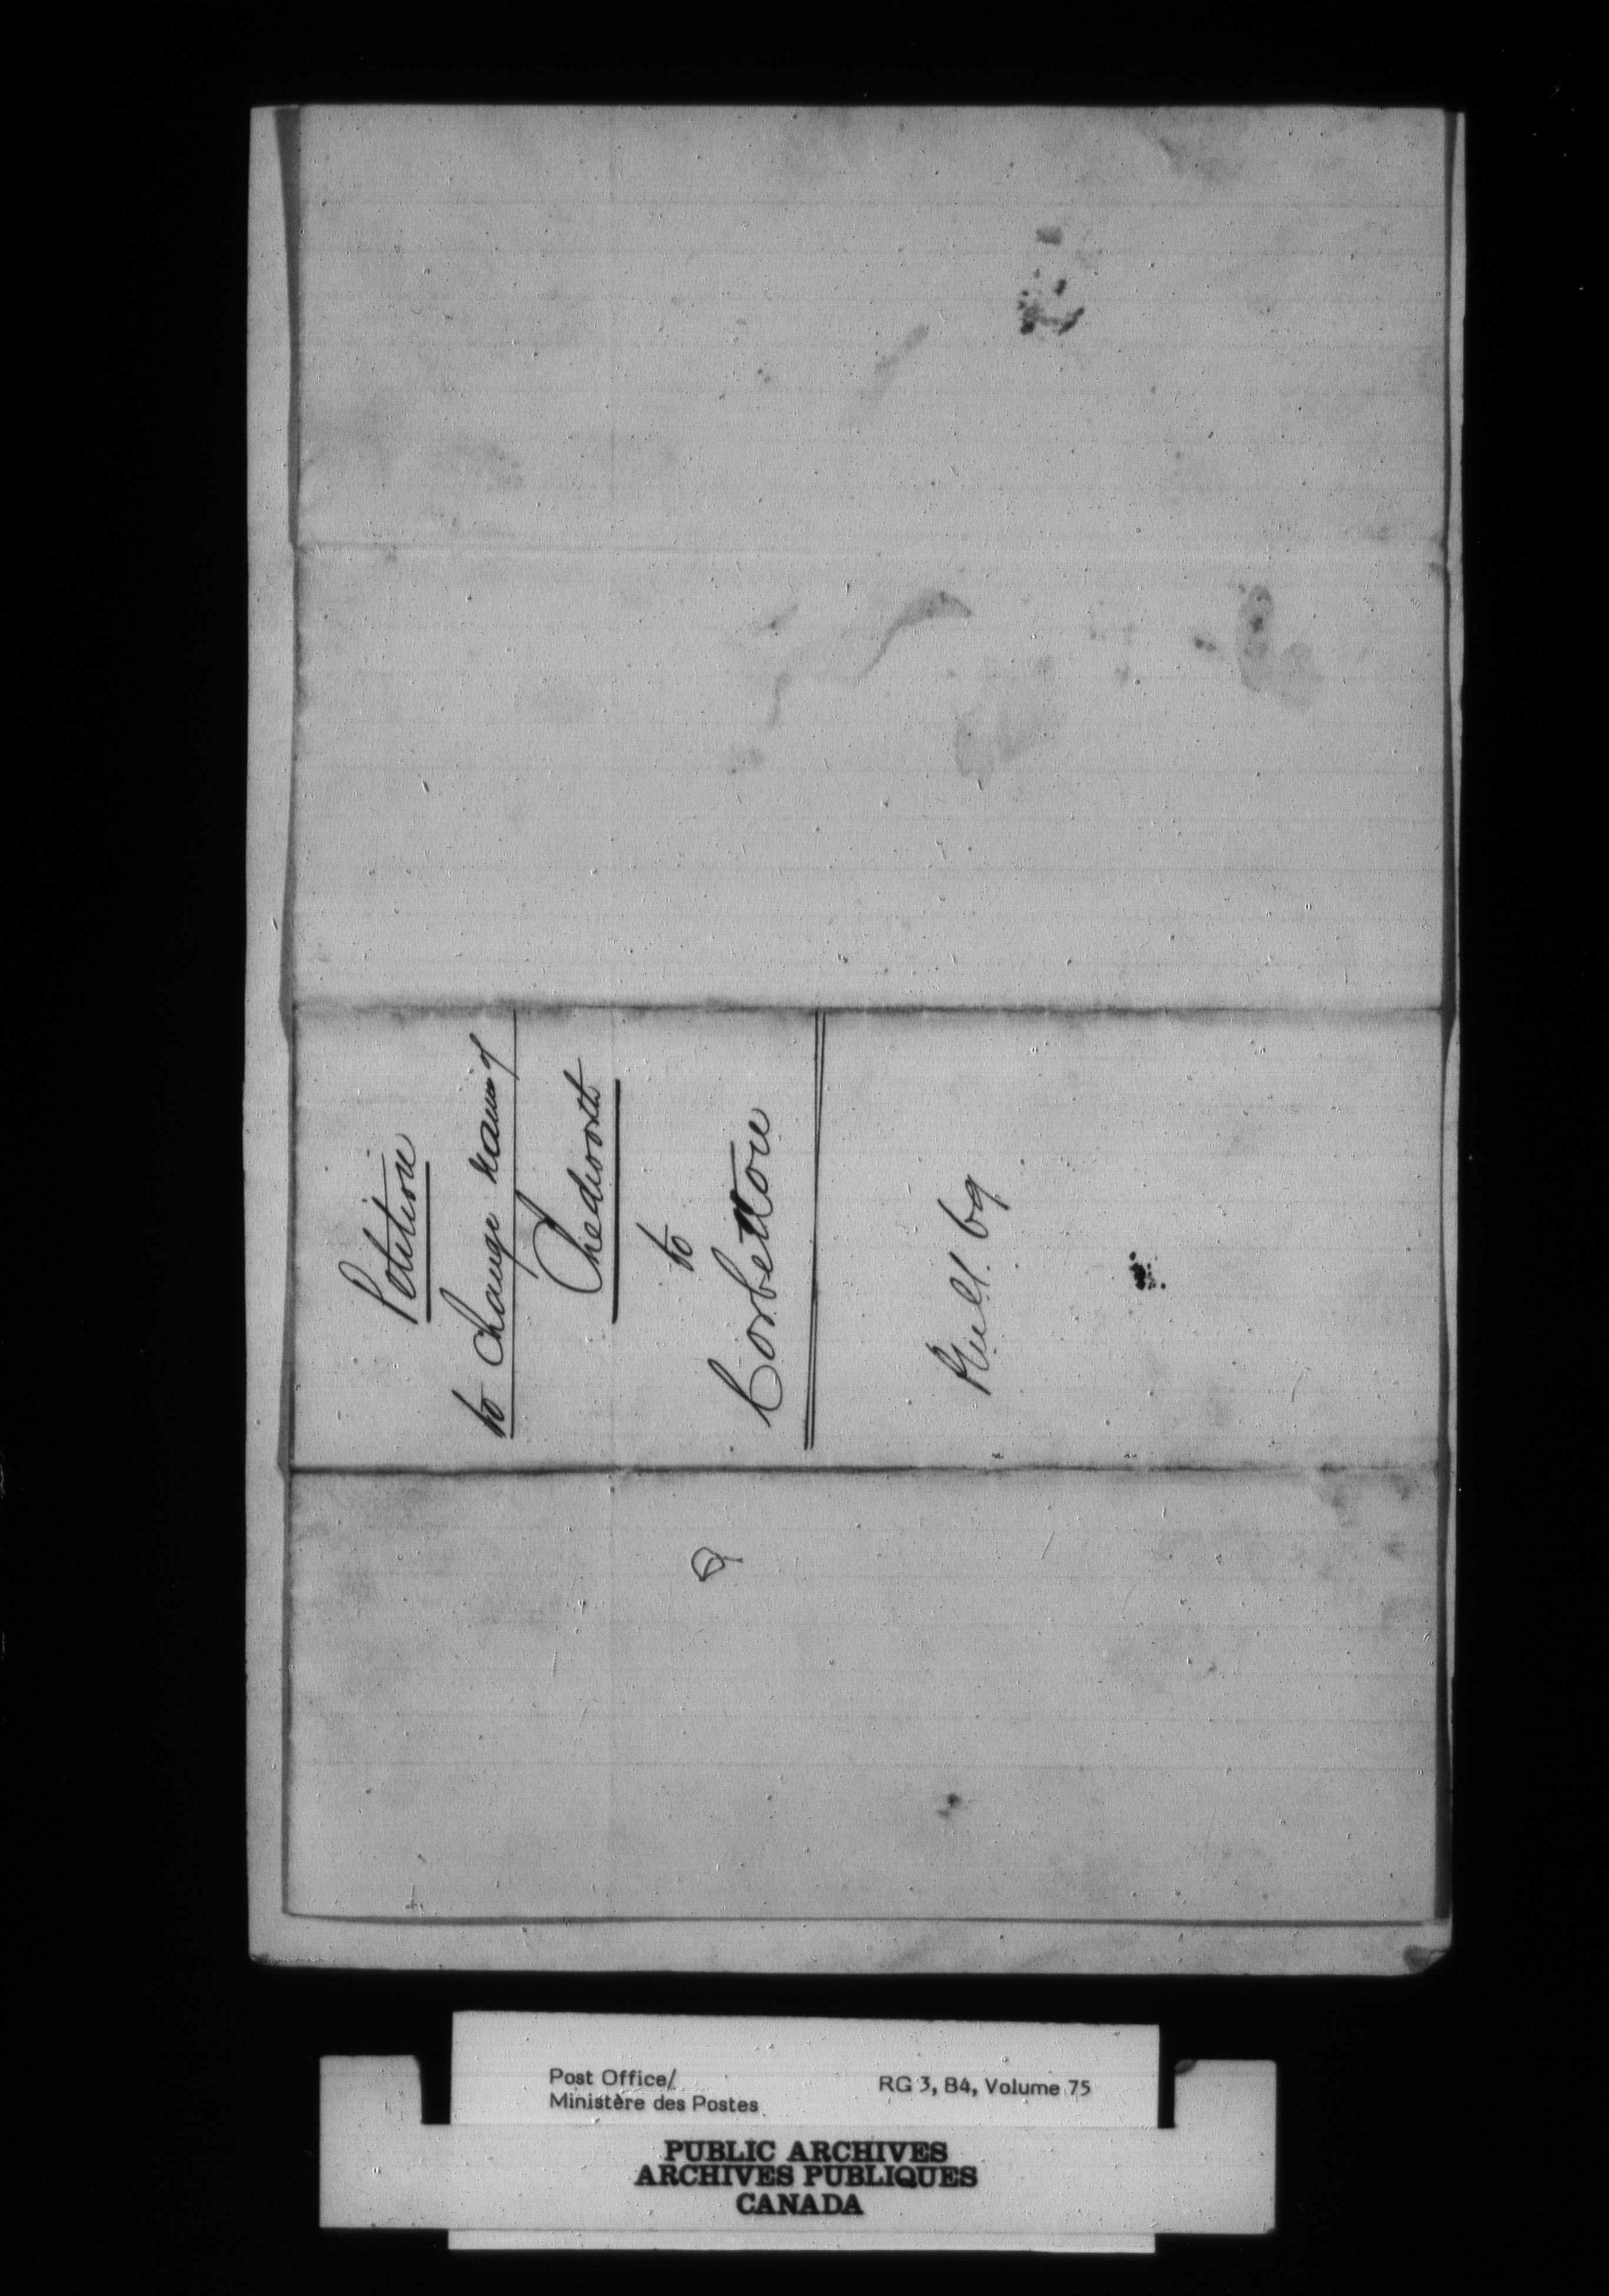 Petition
to change name of
Chedworth
to
Corbetton
69
Post Office/
Ministère des Postes
RG 3, B4, Volume 75
PUBLIC ARCHIVES
ARCHIVES PUBLIQUES
CANADA